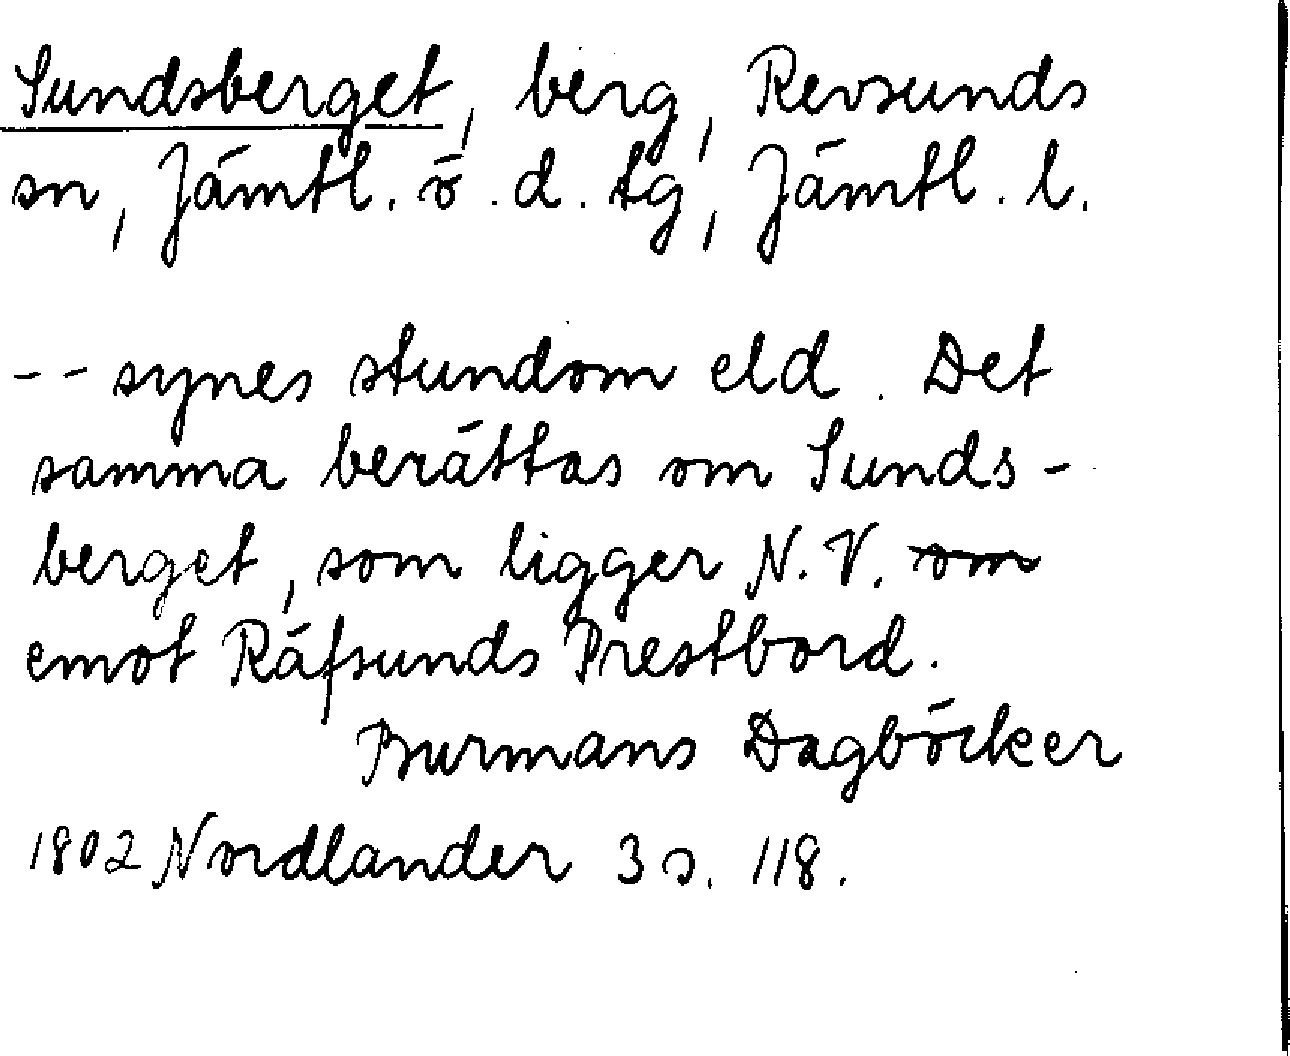 Sundsberget, berg, Revsunds
sn, Jämtl. ö. d. tg, Jämtl. l.
-- synes stundom eld. Det
samma berättas om Sunds-
berget, som ligger N.V. om
emot Räfsunds Prestbord.
Burmans Dagböcker
1802 Nordlander 3 s. 118.